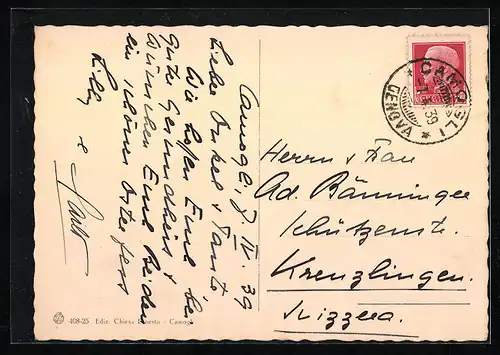 Camogli, 7. IV. 39
Liebe Onkel & Tante
Wir hoffen Eure be
gute Gesundheit &
wünschen Euch Beiden
ein schönes Osterfest
Lilly &
Herrn & Frau
Ad. Bänninger
Schützenstr.
Kreuzlingen.
Svizzera.
CAMOGLI
* GENOVA *
7. 4. 39
408-25 Ediz. Chiesa Ernesto - Camogli